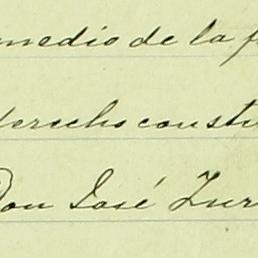 medio de la f
derecho consti
Don José Zur